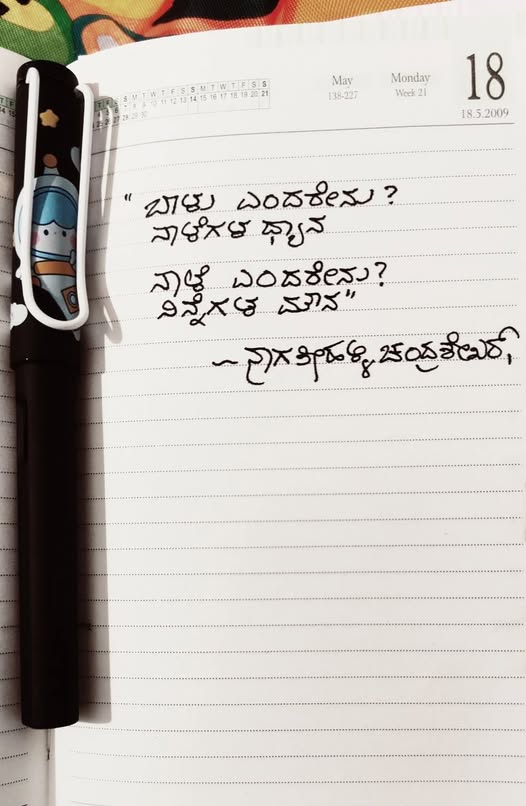 May
138-227
Monday
Week 21
18
18.5.2009
"ಬಾಳು ಎಂದರೇನು?
ನಾಳೆಗಳ ಧ್ಯಾನ
ನಾಳೆ ಎಂದರೇನು?
ನಿನ್ನೆಗಳ ಮೌನ"
~ ನಾಗತೀಹಳ್ಳಿ ಚಂದ್ರಶೇಖರ್,